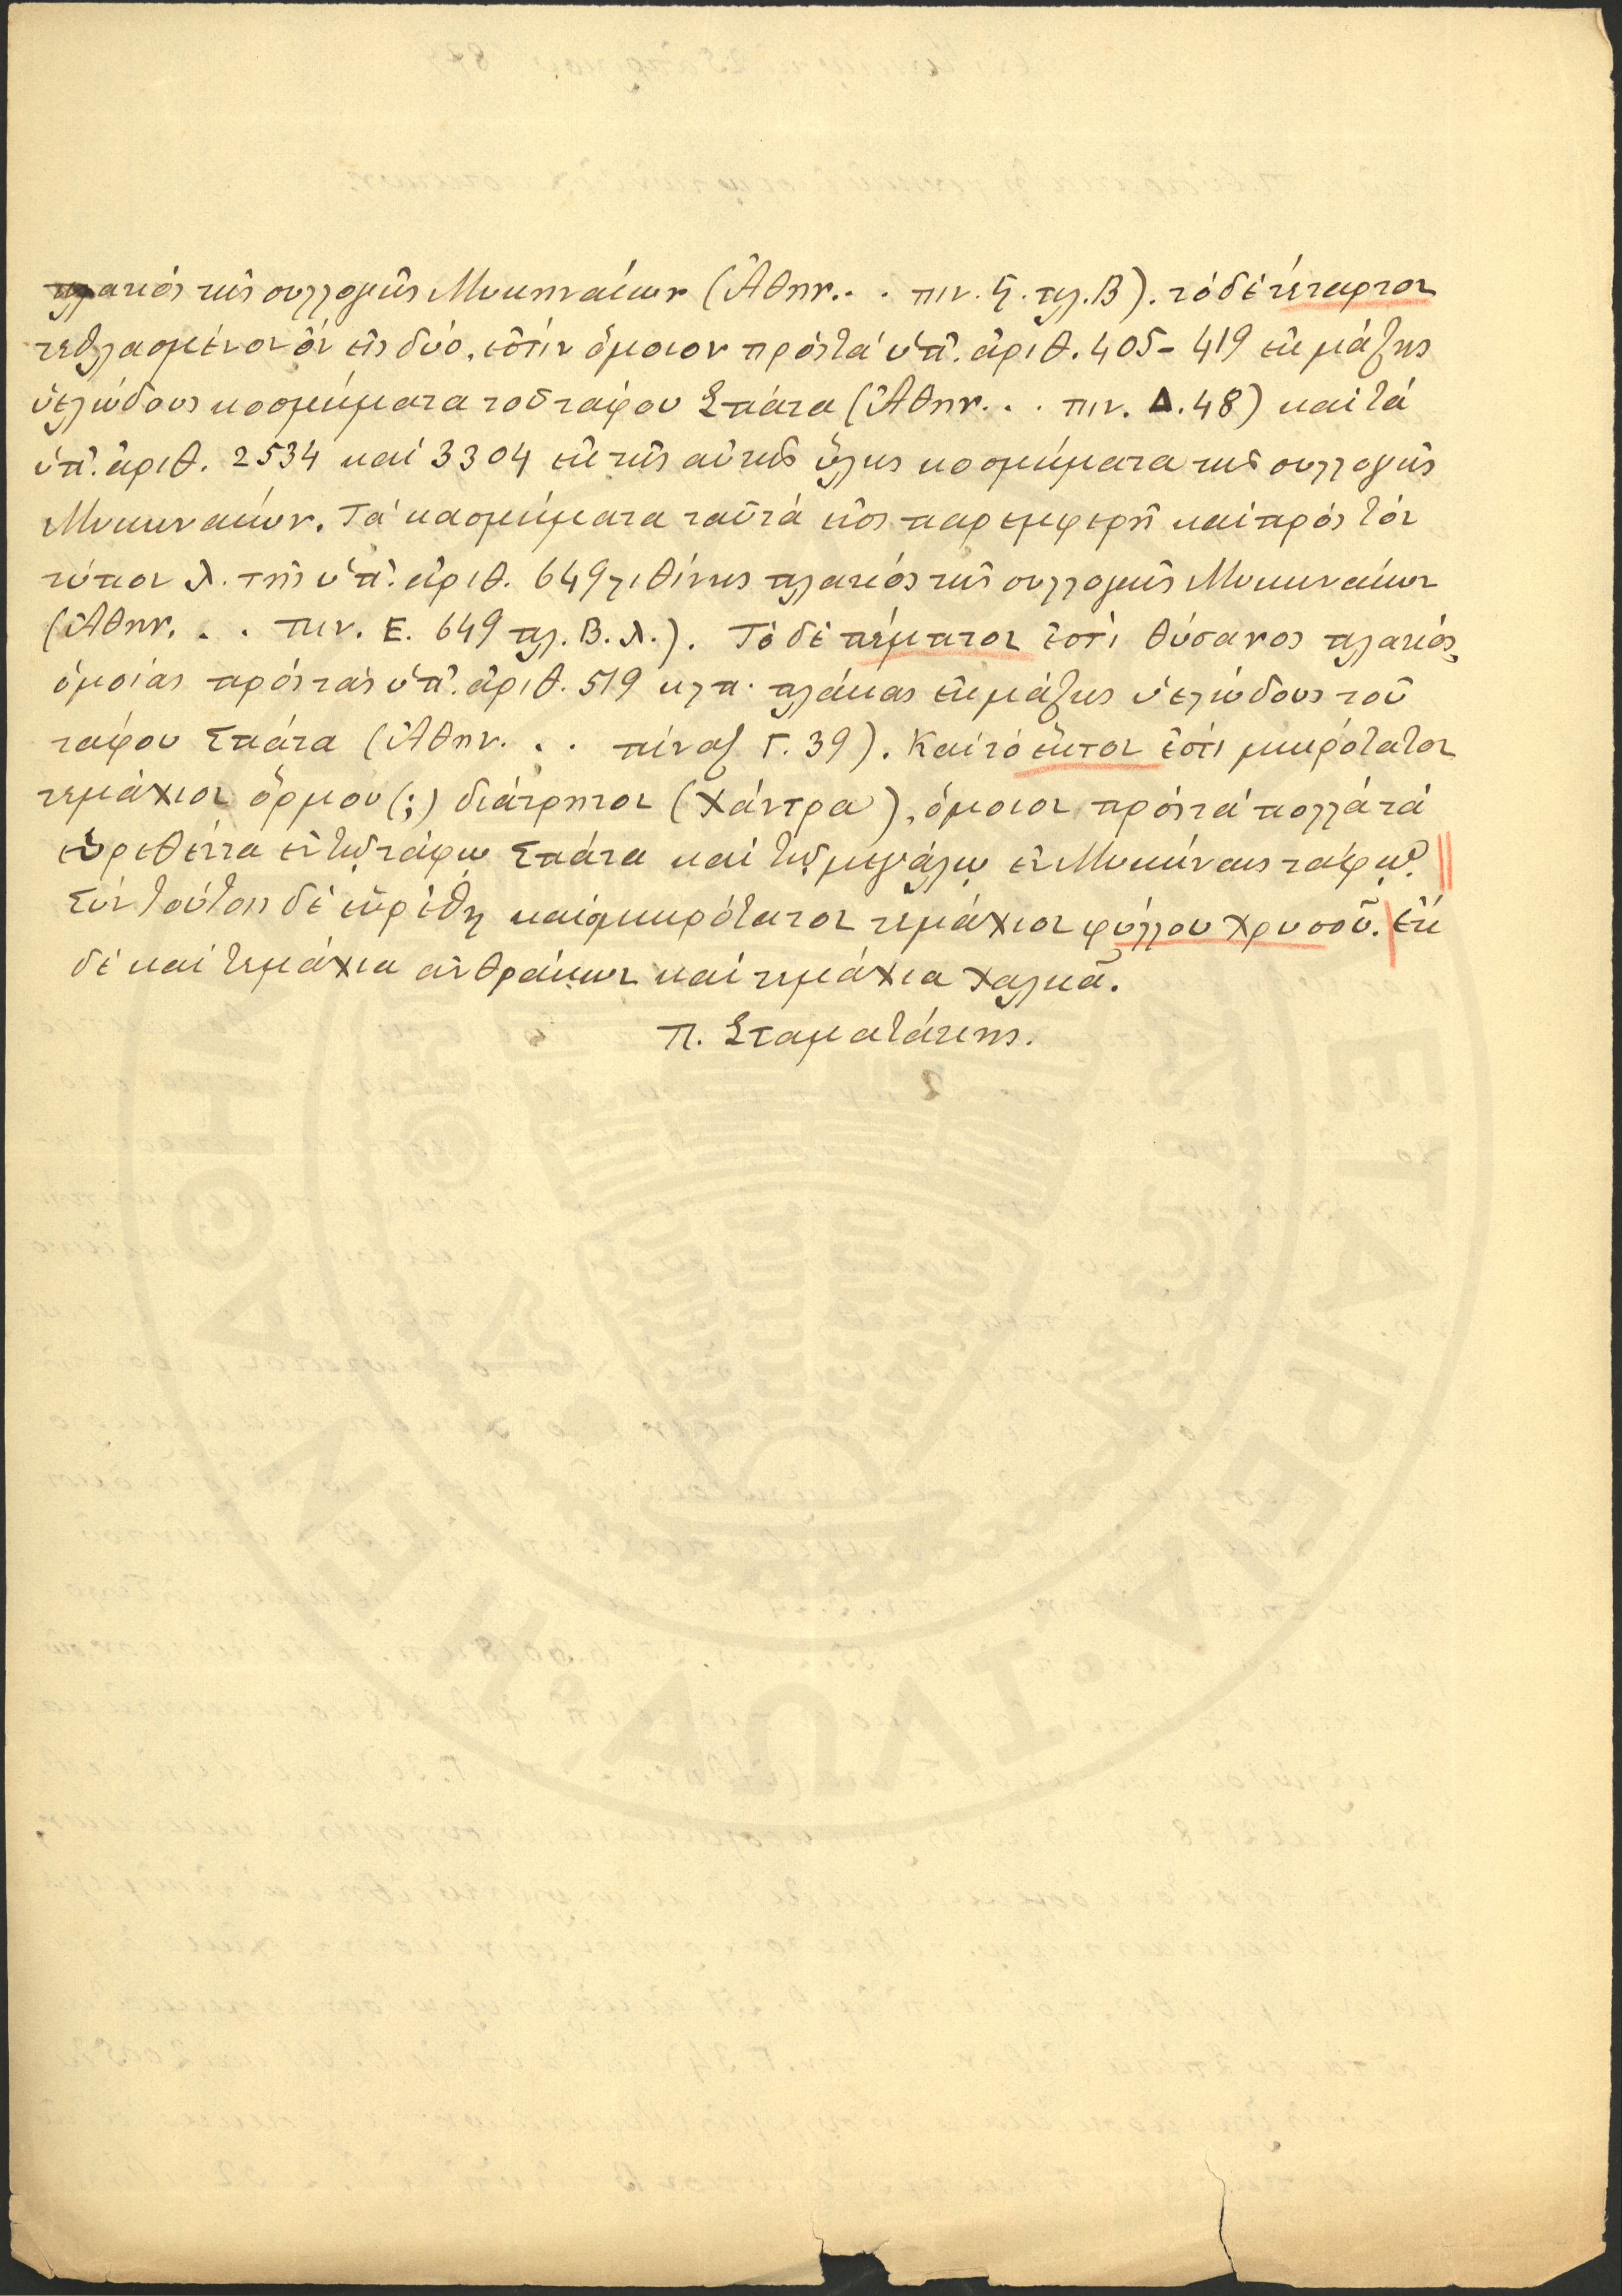 πλακός τῆς συλλογῆς Μυκηναίων (Ἀθην. . . πιν. Ϛ. πλ. Β). τὸ δὲ τέταρτον
τεθλασμένον ὂν εἰς δύο, ἐστὶν ὅμοιον πρὸς τὰ ὑπ'. ἀριθ. 405-419 ἐκ μάζης
ὑελώδους κοσμήματα τοῦ τάφου Σπάτα (Ἀθην. . . πιν. Δ. 48) καὶ τὰ
ὑπ'. ἀριθ. 2534 καὶ 3304 ἐκ τῆς αὐτῆς ὕλης κοσμήματα τῆς συλλογῆς
Μυκηναίων. Τὰ κοσμήματα ταῦτά εἰσι παρεμφερῆ καὶ πρὸς τὸν
τύπον λ. τῆς ὑπ'. ἀριθ. 649 λιθίνης πλακὸς τῆς συλλογῆς Μυκηναίων
(Ἀθην. . . πιν. Ε. 649 πλ. Β. λ.). Τὸ δὲ πέμπτον ἐστὶ θύσανος πλακὸς
ὁμοίας πρὸς τὰς ὑπ'. ἀριθ. 519 κλπ. πλάκας ἐκ μάζης ὑελώδους τοῦ
τάφου Σπάτα (Ἀθην. . . πίναξ Γ. 39). Καὶ τὸ ἕκτον ἐστὶ μικρότατον
τεμάχιον ὅρμου (;) διάτρητον (χάντρα), ὅμοιον πρὸς τὰ πολλὰ τὰ
εὑρεθέντα ἐν τῷ τάφῳ Σπάτα καὶ τῷ μεγάλῳ ἐν Μυκήναις τάφῳ.
Σὺν τούτοις δὲ εὑρέθη καὶ μικρότατον τεμάχιον φύλλου χρυσοῦ. ἔτι
δὲ καὶ τεμάχια ἀνθράκων καὶ τεμάχια χαλκᾶ.
Π. Σταματάκης.